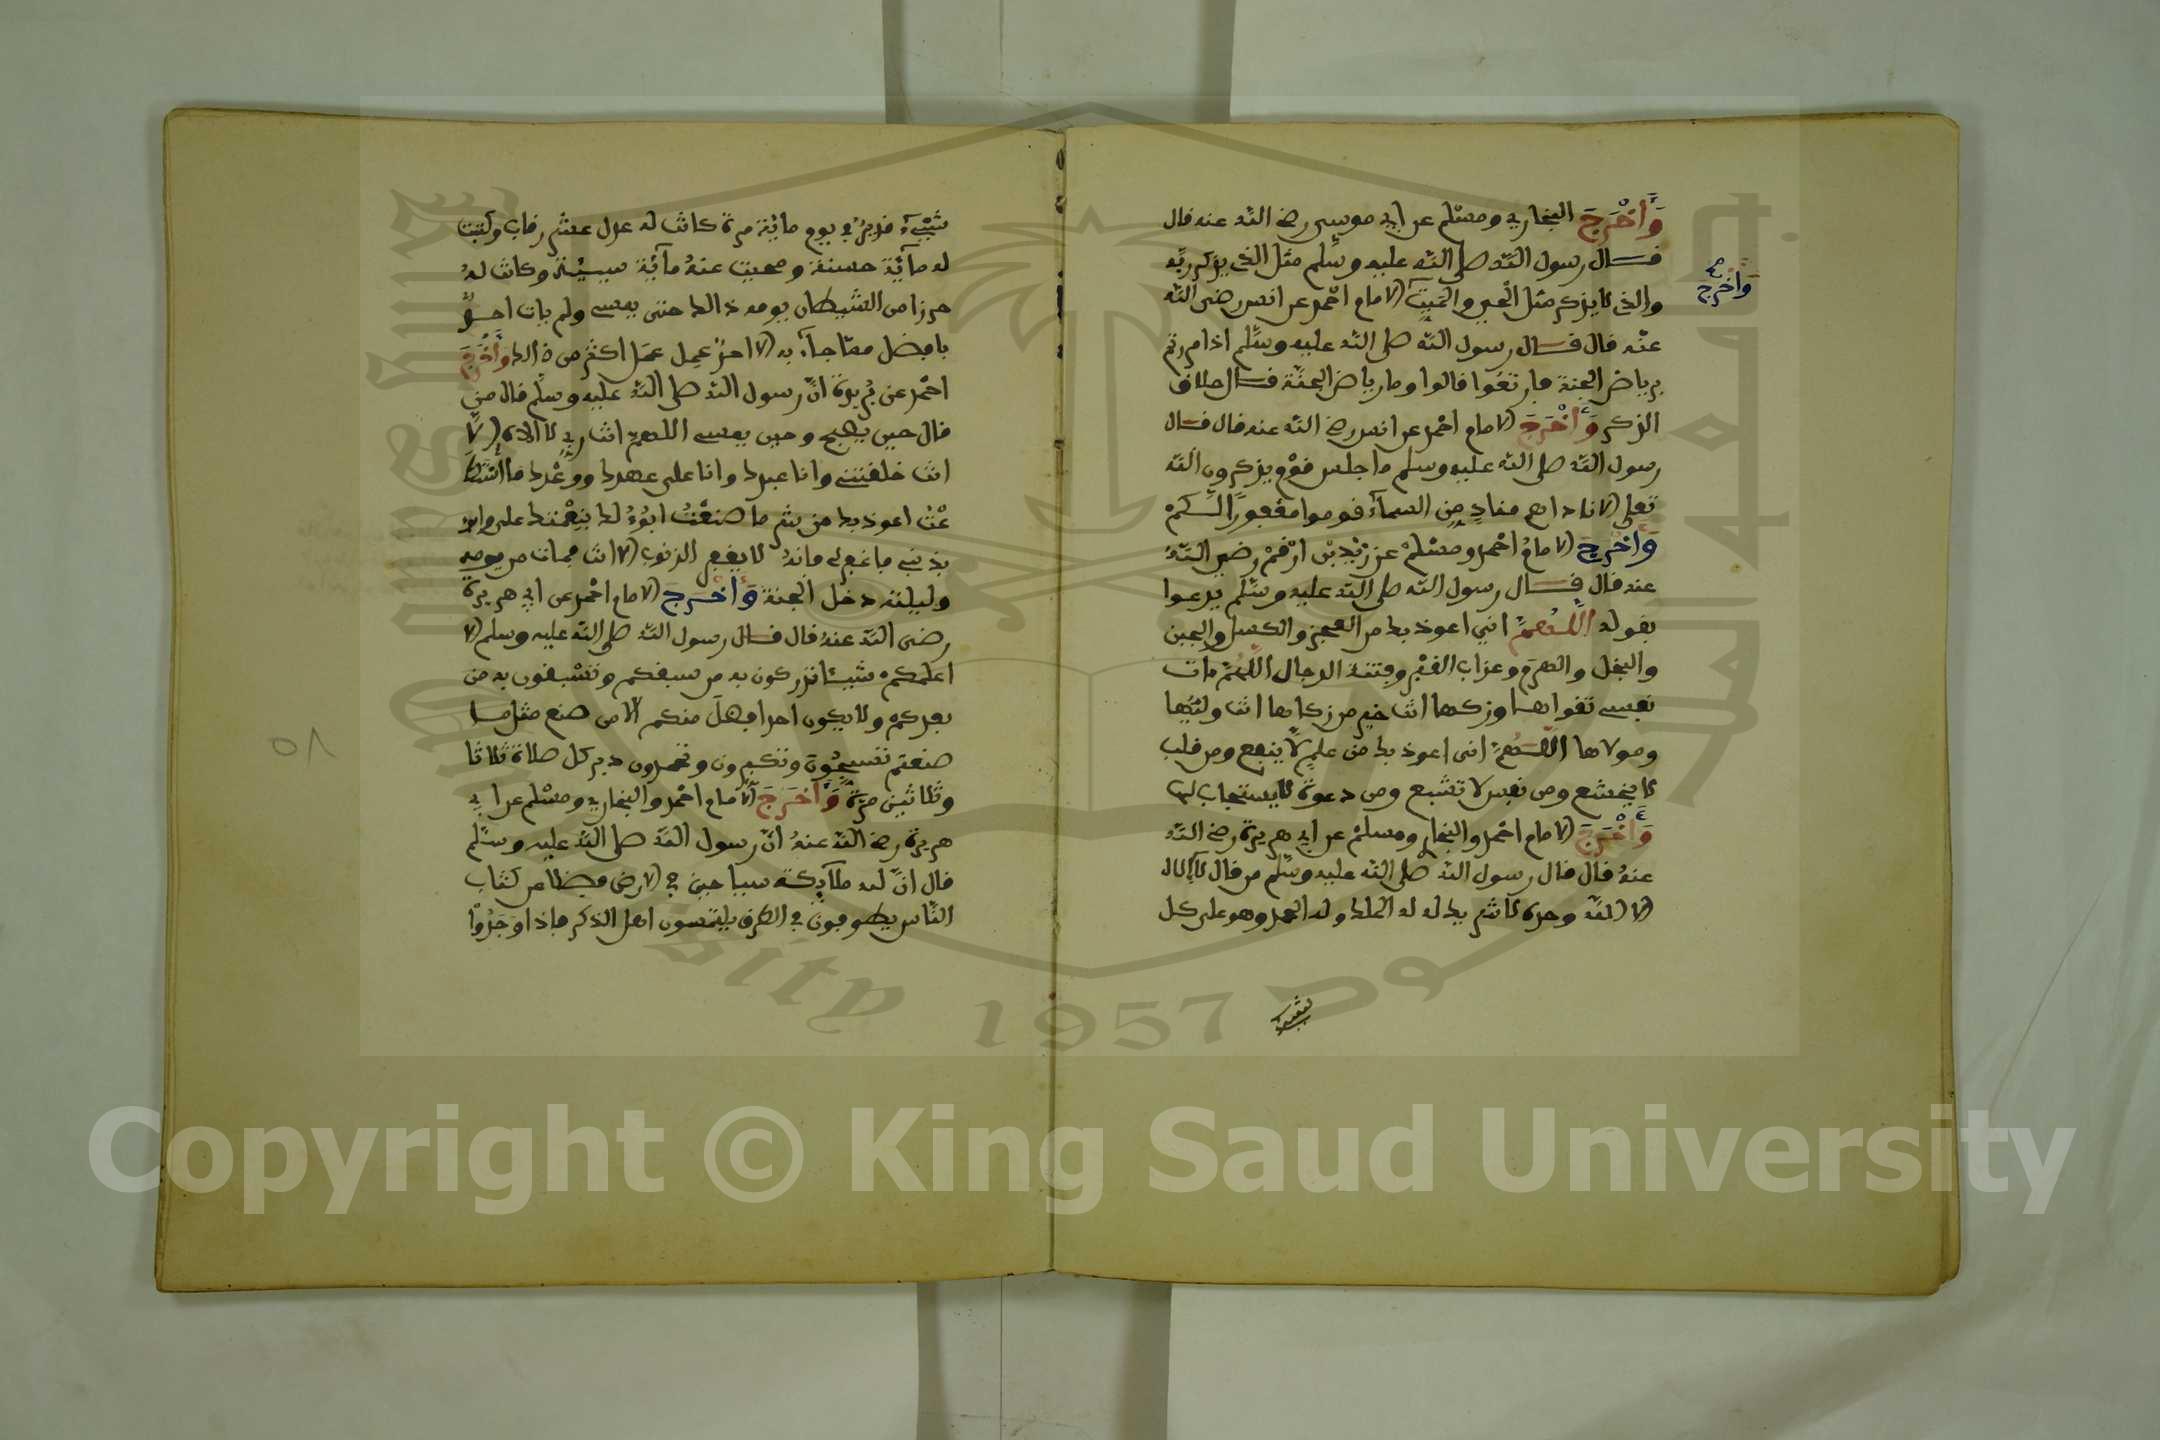 وَأَخْرَجَ البخاري ومسلم عن أبي موسى رضي الله عنه قال
قال رسول الله صلى الله عليه وسلم مثل الذي يذكر ربه
والذي لا يذكر مثل الحي والميت الامام احمد عن انس رضي الله
وَأخْرج صح
عنه قال قال رسول الله صلى الله عليه وسلم اذا مررتم
برياض الجنة فارتعوا قالوا وما رياض الجنة قال حلاق
الذكر وَأَخْرَجَ الامام احمد عن انس رضي الله عنه قال قال
رسول الله صلى الله عليه وسلم ما جلس قوم يذكرون الله
تعلى الا ناداهم مناد من السماء قوموا مغفورا لكم
وَأَخْرَجَ الامام احمد ومسلم عن زيد بن ارقم رضي الله
عنه قال قال رسول الله صلى الله عليه وسلم يدعوا
بقوله اللهم اني اعوذ بك من العجز والكسل والجبن
والبخل والهرم وعذاب القبر وفتنة الدجال اللهم ءات
نفسي تقواها وزكها انت خير من زكاها انت وليها
ومولاها اللهم اني اعوذ بك من علم لا ينفع ومن قلب
لا يخشع ومن نفس لا تشبع ومن دعوة لا يستجاب لها
وَأَخْرَجَ الامام احمد والبخار ومسلم عن ابي هريرة رضي الله
عنه قال قال رسول الله صلى الله عليه وسلم من قال لا إلاه
الا الله وحده لا شريك له له الملك وله الحمد وهو على كل
شيء
شيء قدير في يوم مائة مرة كانت له عدل عشر رقاب وكتبت
له مائة حسنة ومحيت عنه مائة سيئة وكانت له
حرزا من الشيطان يومه ذالك حتى يمسي ولم يات احد
بافضل مما جاء به الا احد عمل عمل اكثر من ذالك وَأَخْرَجَ
احمد عن بريدة ان رسول الله صلى الله عليه وسلم قال من
قال حين يصبح وحين يمسي اللهم انت ربي لا الاه الا
انت خلقتني وانا عبدك وانا على عهدك ووعدك ما استطـ
عت اعوذ بك من شر ما صنعت ابوء لك بنعمتك علي وابوء
بذنبي فاغفر لي فانه لا يغفر الذنوب الا انت فمات من يومه
وليلته دخل الجنة وَأَخْرَجَ الامام احمد عن ابي هريرة
رضي الله عنه قال قال رسول الله صلى الله عليه وسلم الا
اعلمكم شيئا تدركون به من سبقكم وتسبقون به من
بعدكم ولا يكون احد افضل منكم الا من صنع مثل ما
صنعتم تسبحون وتكبرون وتحمدون دبر كل صلاة ثلاثا
وثلاثين مرة وَأَخْرَجَ الامام احمد والبخاري ومسلم عن ابي
هريرة رضي الله عنه ان رسول الله صلى الله عليه وسلم
قال ان لله ملائكة سياحين في الارض فضلا عن كتاب
الناس يطوفون في الطرق يلتمسون اهل الذكر فاذا وجدوا
٥٨
Copyright © King Saud University
1957